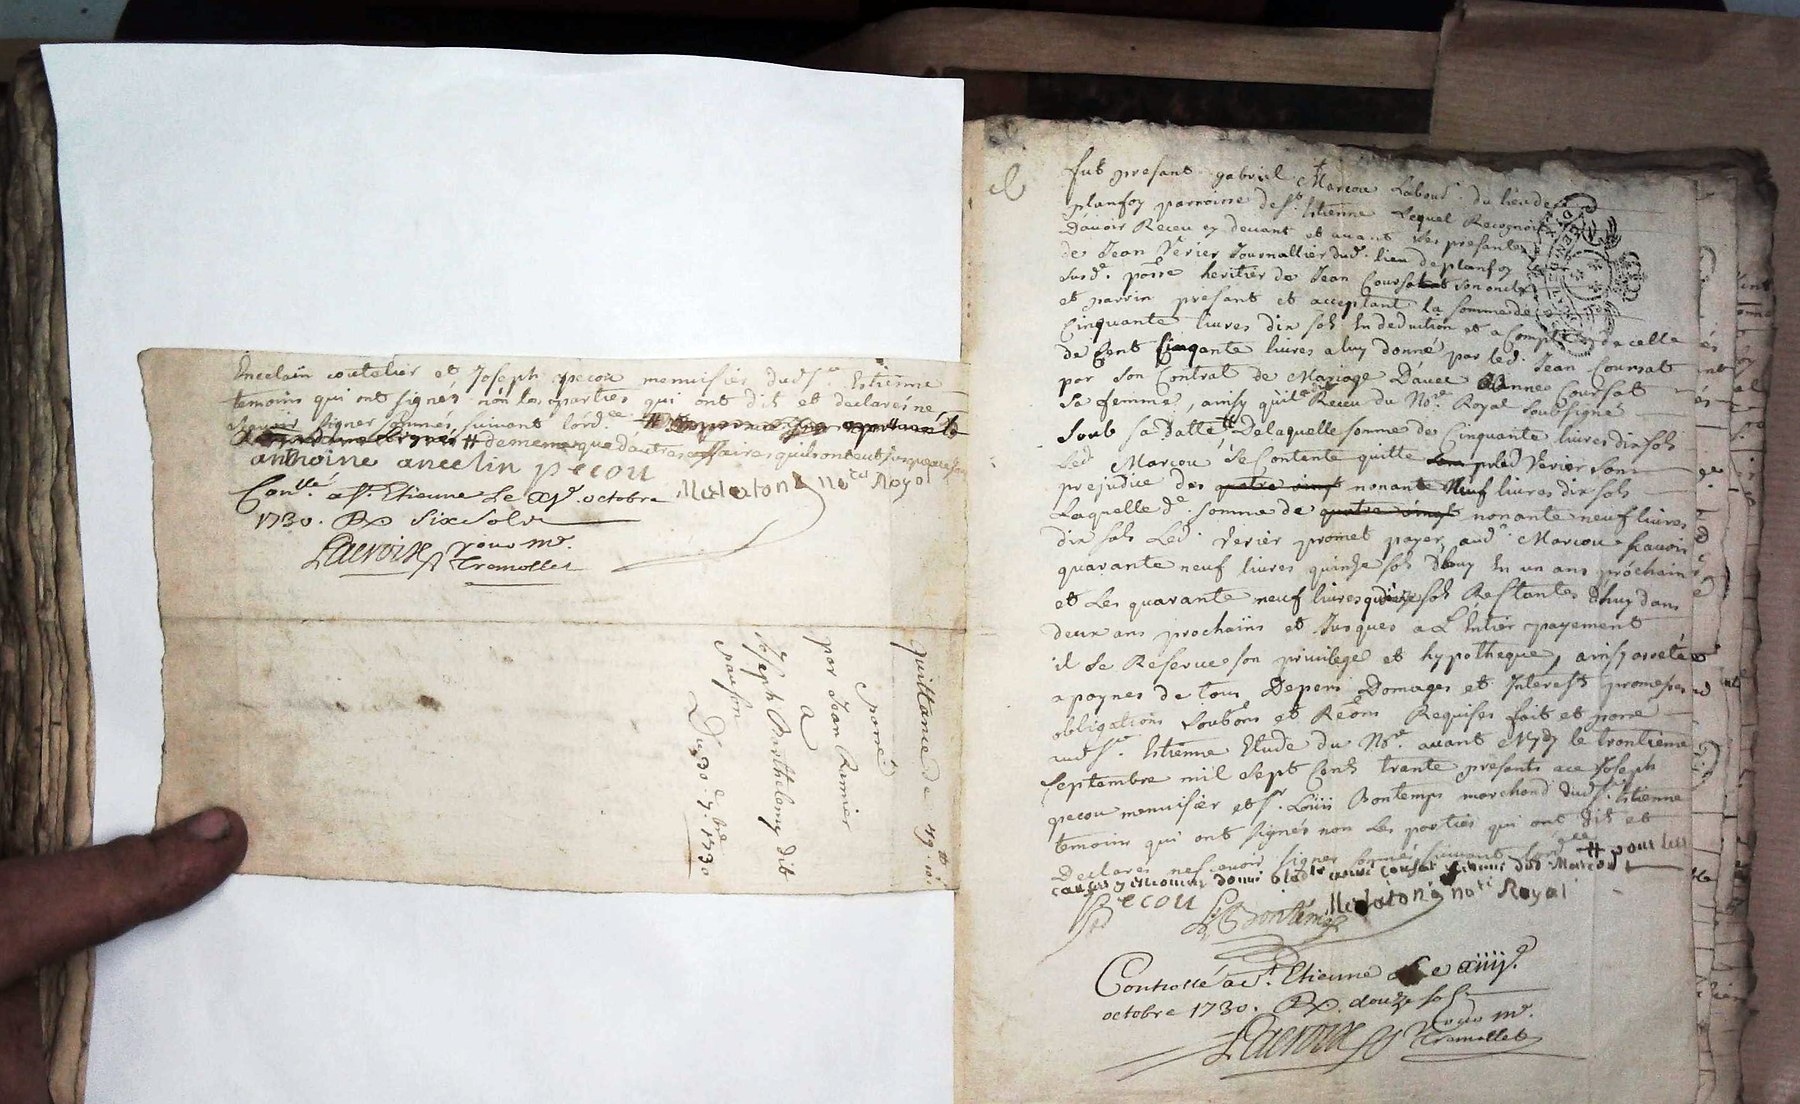 Ancelain coutelier et Joseph pecou menuisier dud St. Estienne
temoins qui ont signés non les parties qui ont dit et declarés ne
sçavoir signer sommés suivant lord.ce
# de meme que d'autres affaires qu'ils ont eut
anthoine ancelin pecou
Meilaton no.re Royal
Con.llé a St. Etienne Le octobre
1730. Rx six sols
Lacroix pour mr.
Tremollet
quittance de 49 tt. 10 s.
passé
par Jean Ranier
a
Joseph Barthelemy dit
Du 30.e 7.bre 1730
fut presant gabriel Marcou Labour.r du lieu de
planfoy parroisse de St. Estienne Lequel Recognoit
D'avoir Receu cy devant et avant Les presantes
de Jean Verier Journallier dud. lieu de planfoy
susd. parr.e heritier de Jean Coursat son oncle
et parrin presant et acceptant la somme de
Cinquante livres dix sols En deduction et a Compte de celle
de Cent Cinqante livres a luy donné par led. Jean Coursat
par son Contrat de Mariage D'avec Annee Coursat
Sa femme, ainsy qu'il a Receu du No.re Royal soubsigné
Soub sa Datte # De laquelle somme de Cinquante livres dix sols
Led. Marcou Se Contente quitte led Verier sans
prejudice des quatre vingt nonante Neuf livres dix sols
Laquelle d.e somme de quatre vingt nonante neuf livres
dix sols Led. Verier promet payer aud. Marcou sçavoir
quarante neuf livres quinze sols D'huy En un ans prochain
et Les quarante neuf livres quinze sols Restantes d'huy dans
deux ans prochains et Jusques a L'Entier payement
il Se Reserve son privilege et hypotheque, ainsy arreté
a paynes de tous Depens Domages et Interests promesses
obligations Soub.ons et Re.ons Requises fait et passé
aud St. Estienne Etude du No.re avant Mydy le trentieme
Septembre mil Sept Cents trante presants a ce Joseph
pecou menuisier et Sr. Louis Bontemps marchand dud St. Estienne
temoins qui ont signés non Les parties qui ont dit et
Declarés ne sçavoir signer sommés suivant lord.ce # pour les
Pecou Bontemps Meilaton no.re Royal
Controllé a St. Etienne Le xiiij.e
octobre 1730. Rx douze sols
Lacroix pour mr.
Tremollet